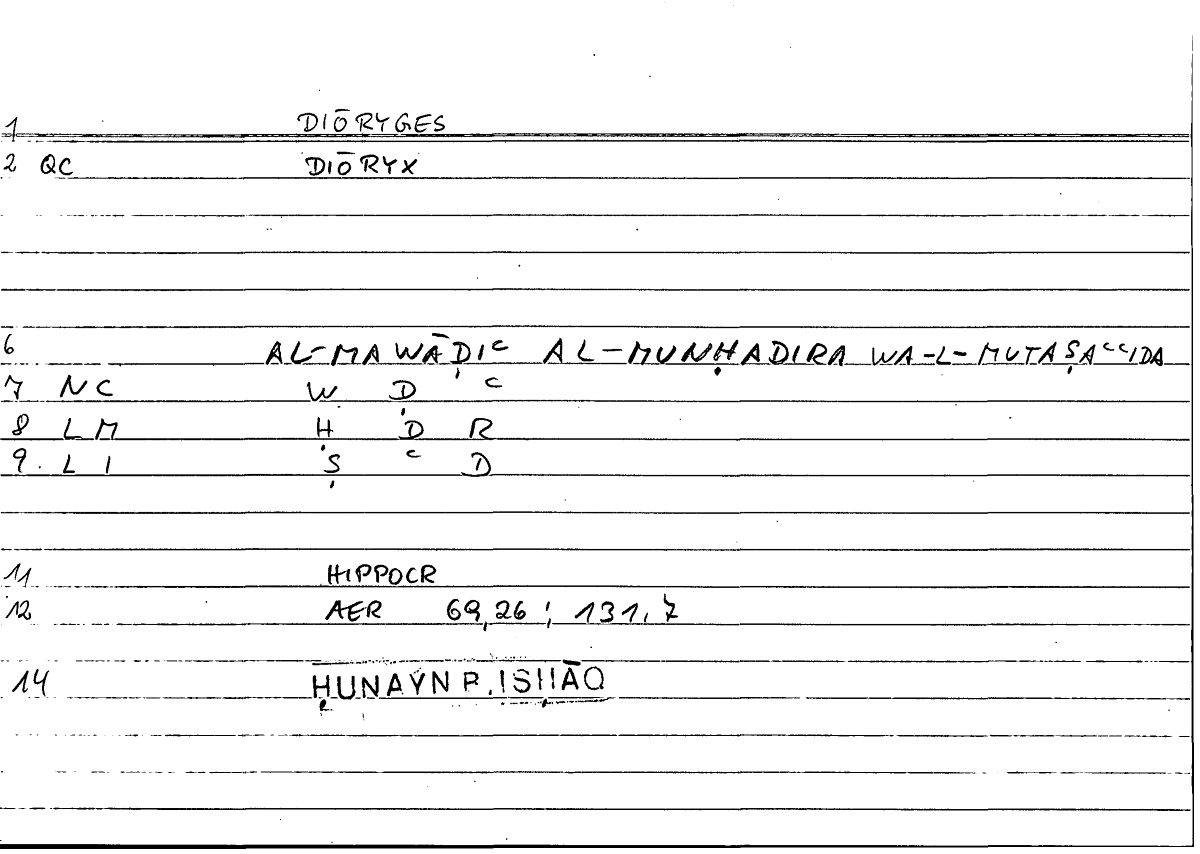 1 DIŌRYGES
2 QC DIŌRYX
6 AL-MAWĀḌIᶜ AL-MUNḤADIRA WA-L-MUTAṢAᶜᶜIDA
7 NC W Ḍ ᶜ
8 LM Ḥ D R
9. LI Ṣ ᶜ D
11 HIPPOCR
12 AER 69,26 ; 131,7
14 ḤUNAYN B. ISḤĀQ